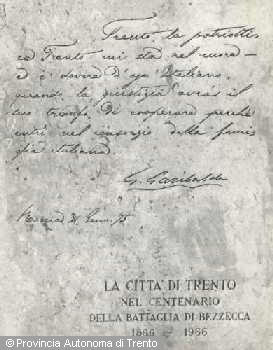 Trento, la patriottica
ed Trento mi sta nel cuore
ed è dovere d'ogni Italiano,
quando la giustizia avrà il
suo trionfo, di cooperare perché
entri nel consorzio della famiglia
italiana.
G. Garibaldi
Roma
LA CITTÀ DI TRENTO
NEL CENTENARIO
DELLA BATTAGLIA DI BEZZECCA
1866 1966
© Provincia Autonoma di Trento